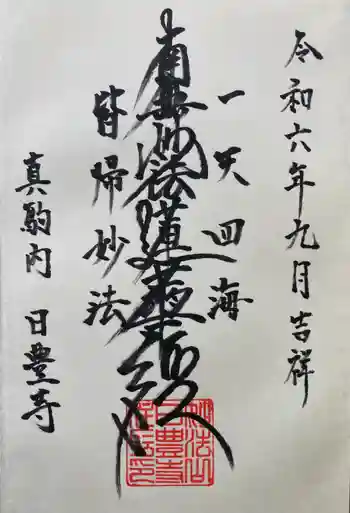 令和六年九月吉祥
一天四海
南無妙法蓮華経
皆帰妙法
真駒内 日豊寺